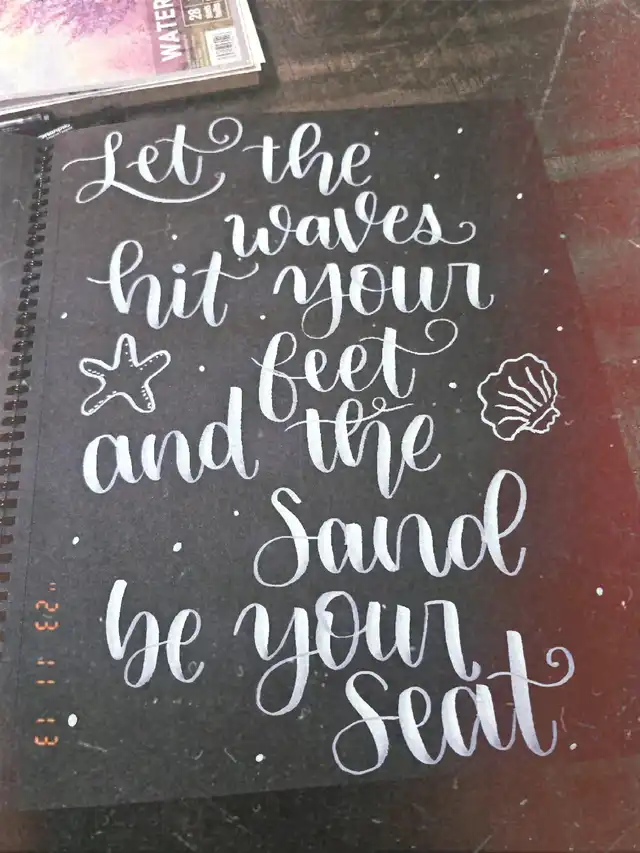 WATER
28
Let the
waves
hit your
feet
and the
Sand
be your
Seat
'23 11 13